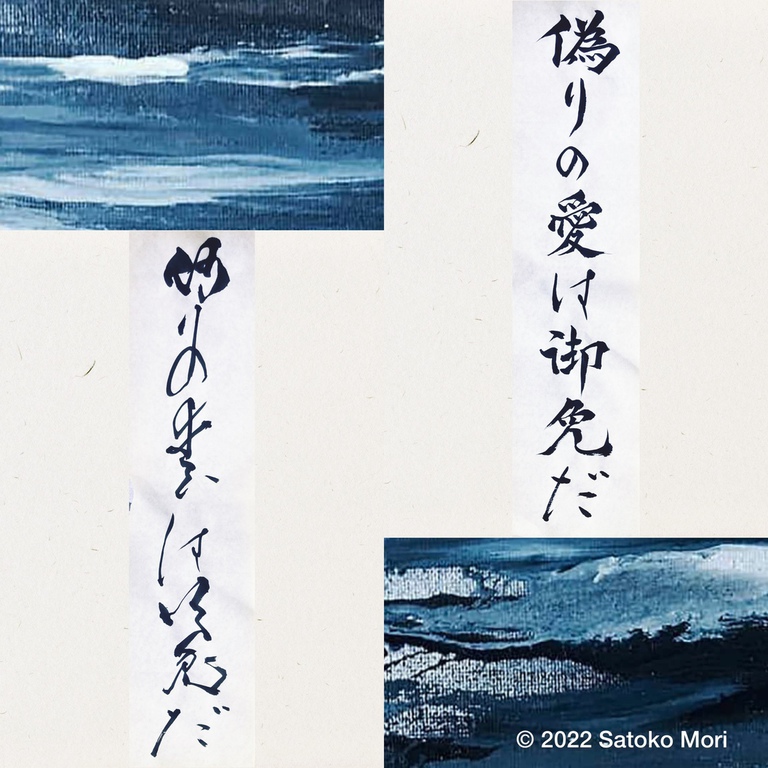 偽りの愛は御免だ
偽りの愛は御免だ
© 2022 Satoko Mori